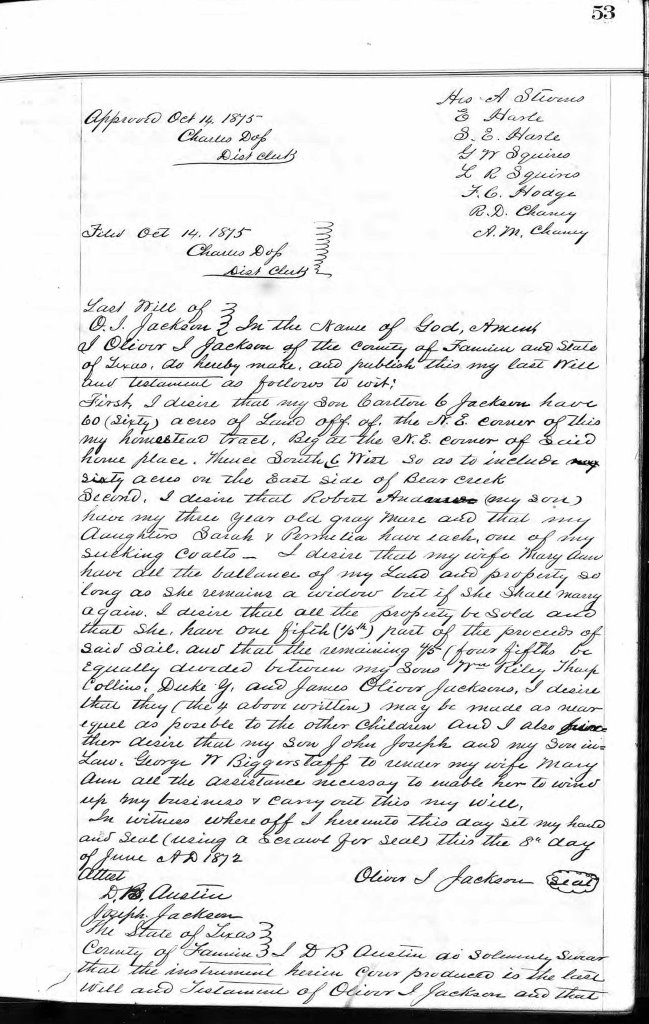 53
Approved Oct 14. 1875
Charles Dofs
Dist Clerk
A Stevens
E Hasle
S. E. Hasle
G W Squires
L R Squires
F. C. Hodge
R. D. Chaney
A. M. Chaney
Filed Oct 14. 1875
Charles Dofs
Dist Clerk
Last Will of
O. I. Jackson In the Name of God, Amen
I Oliver I Jackson of the County of Fannin and State
of Texas, do hereby make, and publish this my last Will
and testament as follows to wit:
First, I desire that my Son Carlton C Jackson have
60 (Sixty) acres of Land off of, the N.E. corner of this
my homestead tract, Beg at the N.E. corner of Said
home place. Thence South & West So as to include
Sixty acres on the East Side of Bear Creek
Second, I desire that Robert (my Son)
have my three year old gray Mare and that my
daughters Sarah & Permelia have each, one of my
Sucking Coalts — I desire that my wife Mary Ann
have all the ballance of my Land and property So
long as She remains a widow but if She Shall marry
again, I desire that all the property be Sold and
that She, have one fifth (1/5th) part of the proceeds of
Said Sail, and that the remaining 4/5 (four fifths be
Equally divided between my Sons Wm Riley Tharp
Collins, Duke Y, and James Oliver Jacksons, I desire
that they (the 4 above written) may be made as near
equel as posible to the other Children and I also fur=
ther desire that my Son John Joseph and my Son in=
Law. George W Biggerstaff to render my wife Mary
Ann all the assistance necessay to enable her to wind
up my business & Carry out this my Will,
In witness where off I hereunto this day set my hand
and Seal (using a Scrawl for Seal) this the 8th day
of June AD 1872
Attest Oliver I Jackson Seal
D. B. Austin
Joseph Jackson
The State of Texas
County of Fannin I D B Austin do Solemnly Swear
that the instrument herein Cour produced is the last
Will and Testament of Oliver I Jackson and that